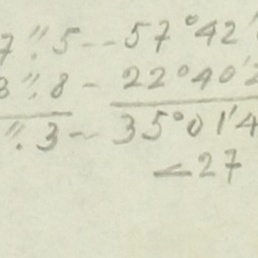 7".5 -- 57°42'
3".8 - 22°40'2
".3 - 35°01'4
<27